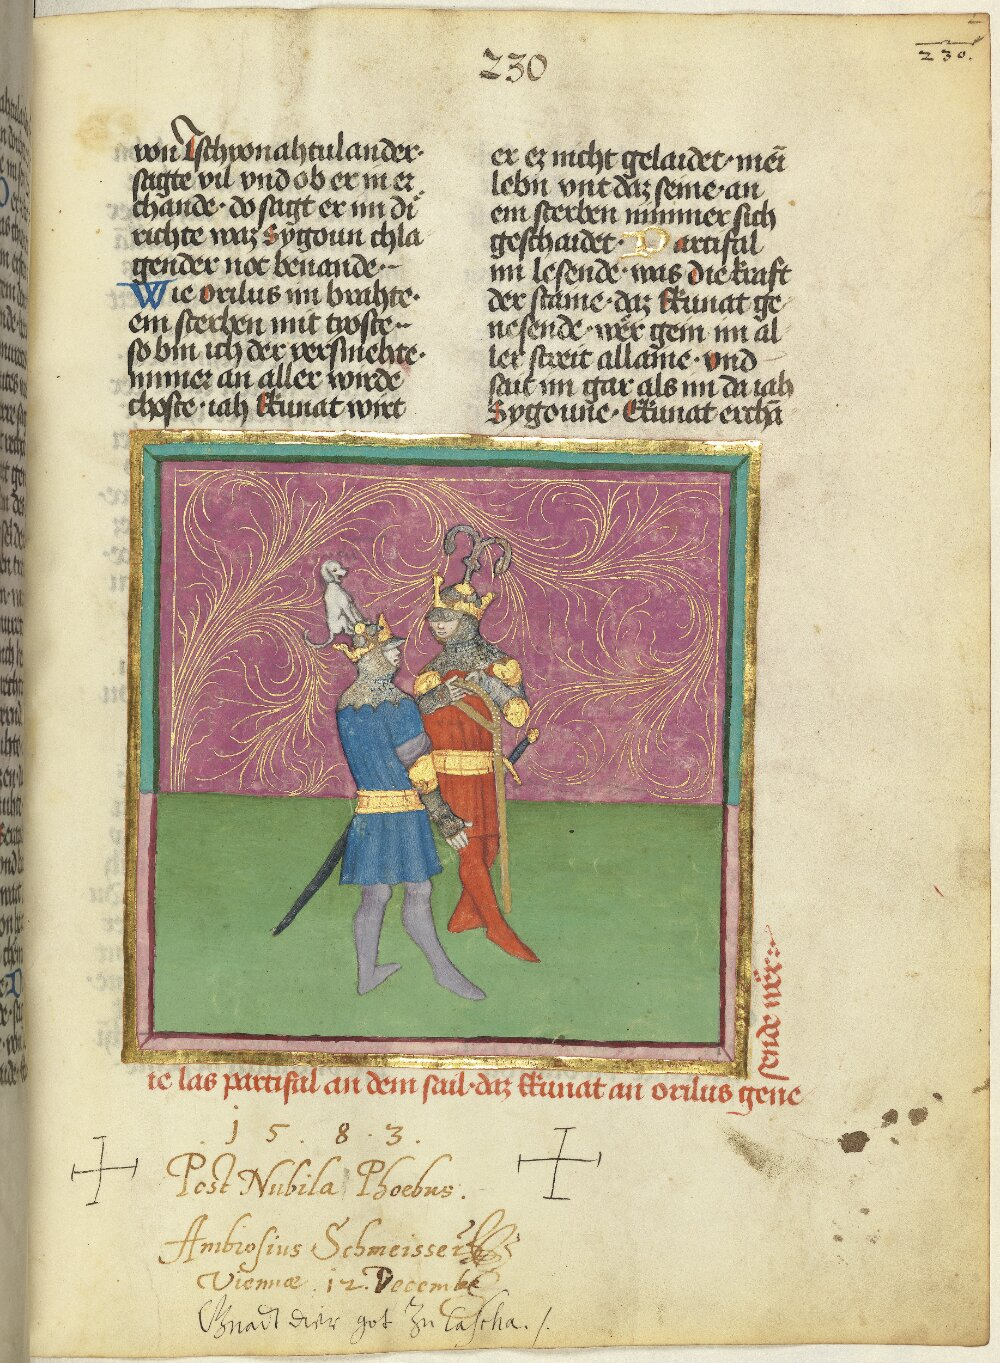 230
230.
von Tschyonahtulander·
sagte vil vnd ob er in er
chande· do sagt er im di
richte waz Sygoun chla
gender not benande·~
Wie Orilus im brahte·
ein sterben mit tyoste~
so bin ich der versmehte·
nimer an aller wirde
choste· iah Ekunat wirt
er ez nicht gelaidet· mei
lebn vnt daz seine· an
ein sterben nimmer sich
geschaidet· Partifal
im lesende· was die kraft
der staine· daz Ekunat ge
nesende· wer gein im al
ler streit allaine· vnd
sait im gar als im da iah
Sygoune· Ekunat
ie las partifal an dem sail· daz Ekunat an orilus gene
sende wer
. 1 5 . 8 . 3 .
Post Nubila Phoebus.
Ambrosius Schmeisser
Viennæ . 12. Decemb
Gnadt dier got Zu